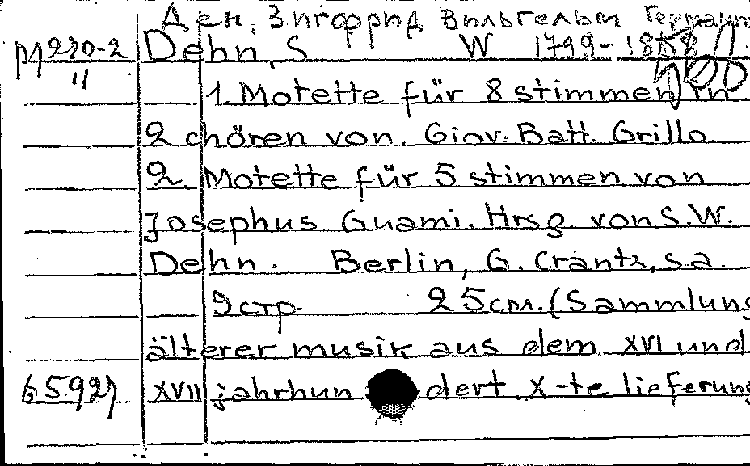 Ден, Зигфрид Вильгельм Герман
М220-2 Dehn, S W 1799-1858
11
1. Motette für 8 stimmen in
2 chören von. Giov. Batt. Grillo
2. Motette für 5 stimmen von
Josephus Guami. Hrsg von S. W.
Dehn. Berlin, G. Crantz, s. a.
9 стр. 25 cm. (Sammlung
älterer musik aus dem XVI und
65.927 XVII jahrhundert. X-te lieferung